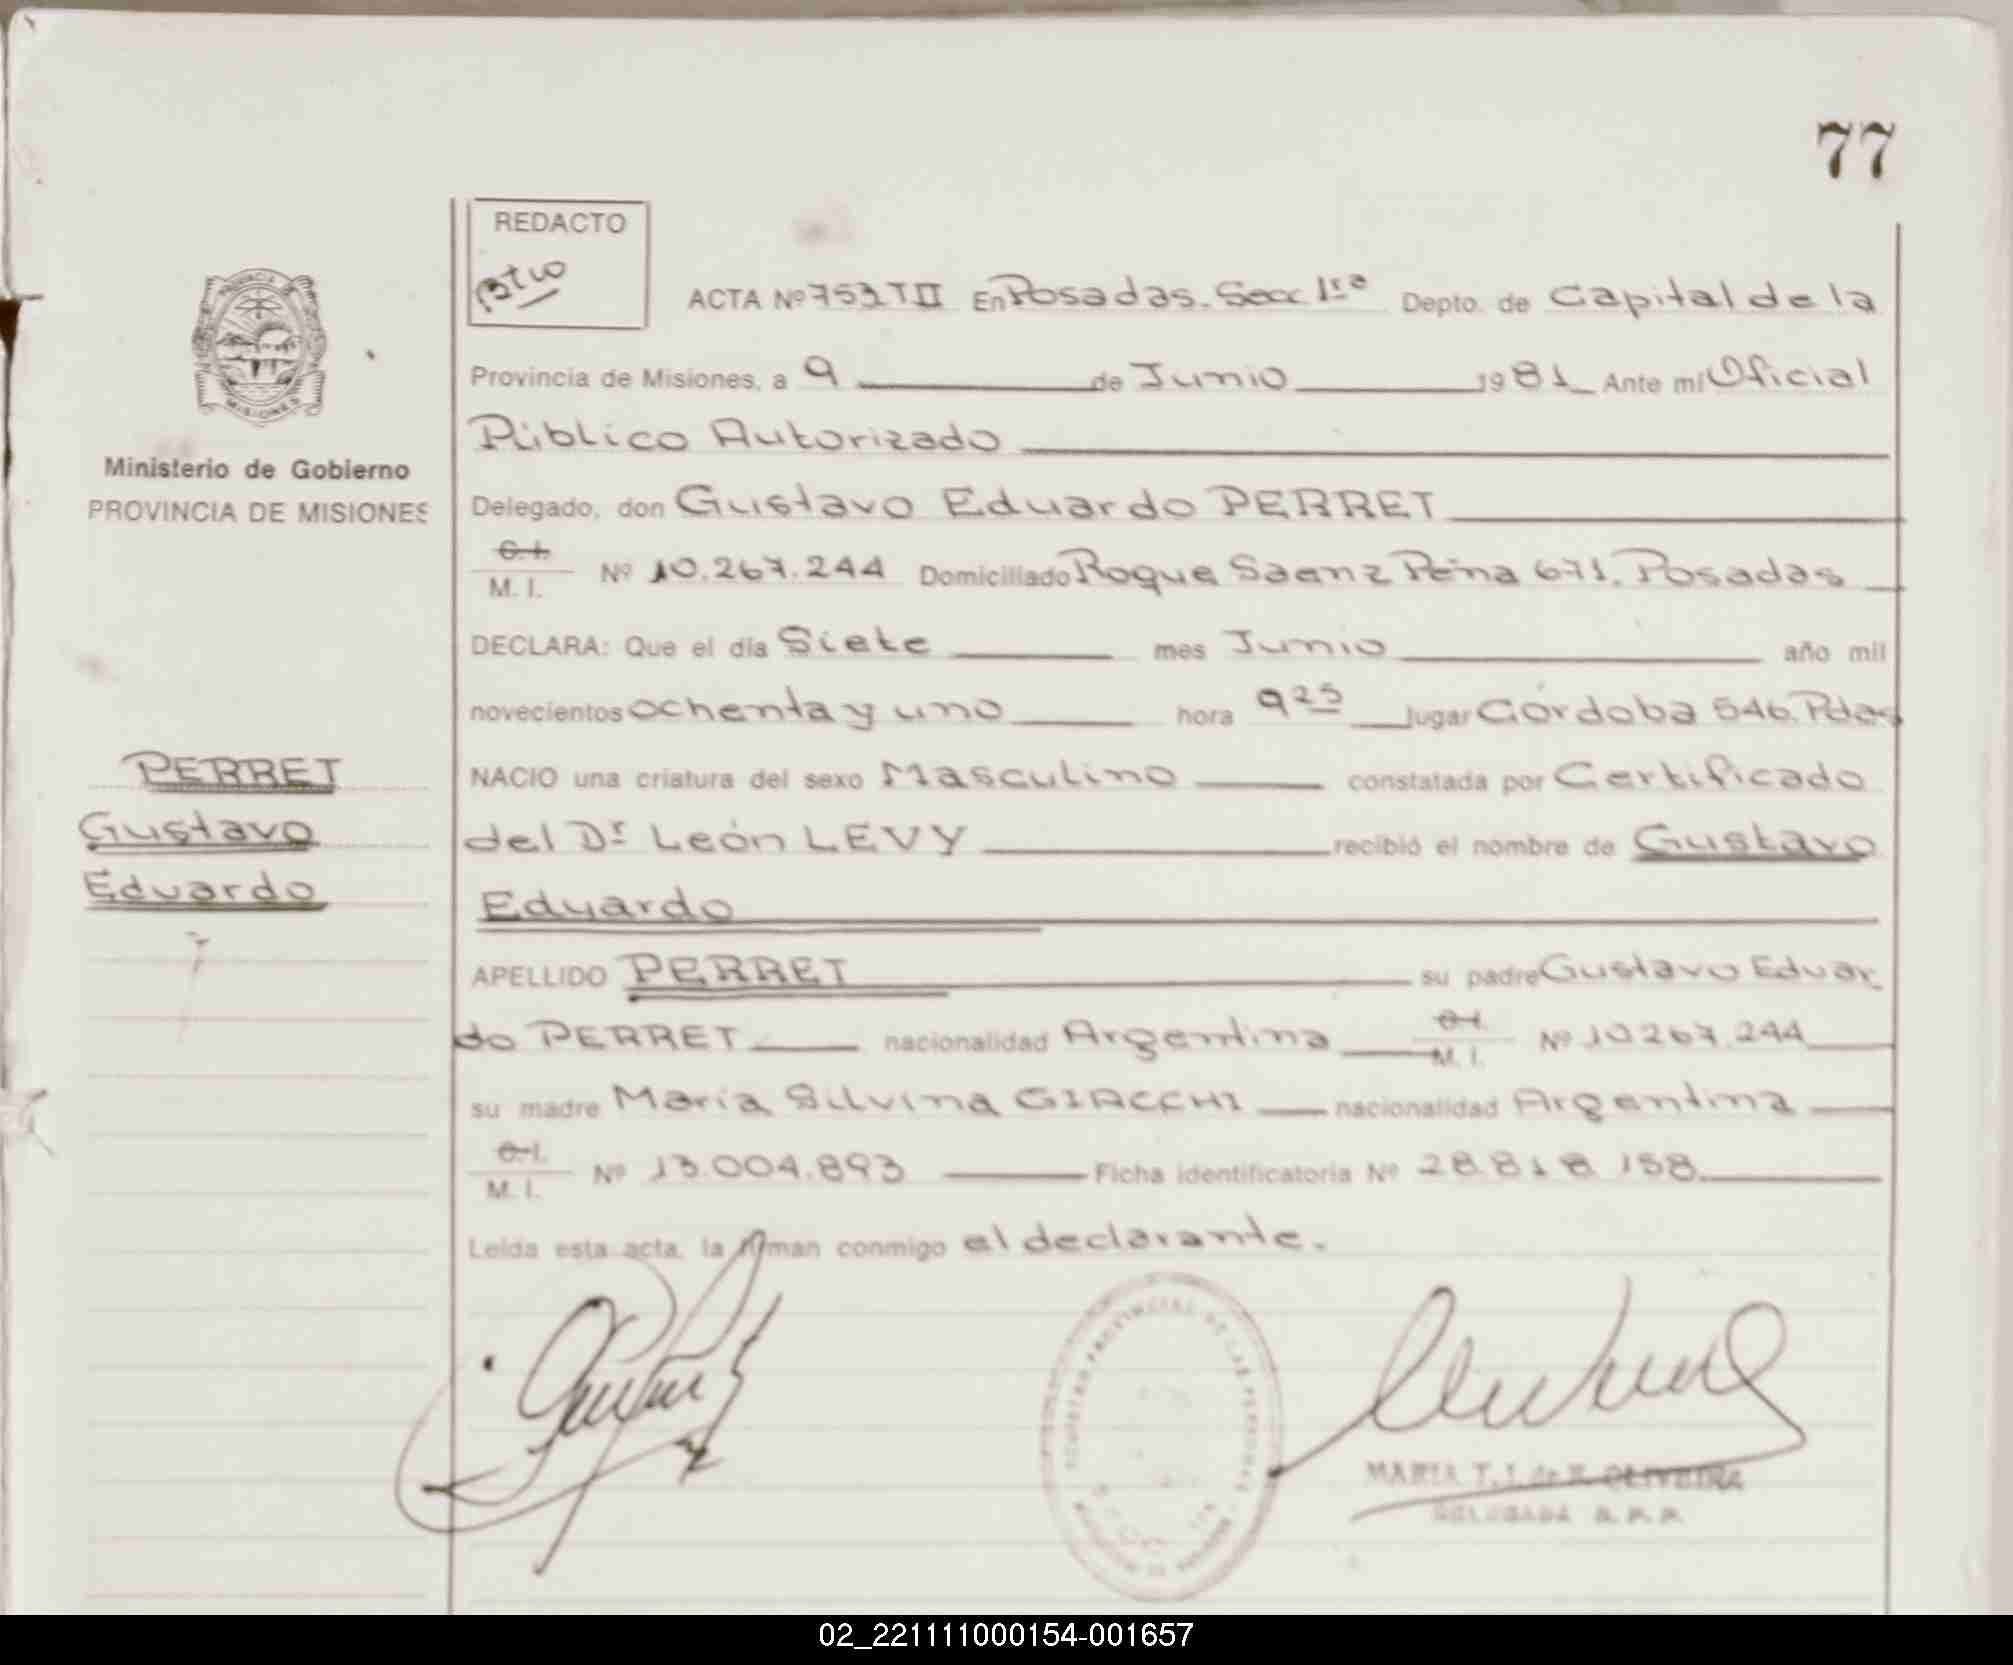 77
REDACTO
ACTA Nº 753 T II En Posadas. Secc 1ra Depto. de Capital de la
Provincia de Misiones, a 9 de Junio 1981 Ante mí Oficial
Público Autorizado
Delegado, don Gustavo Eduardo PERRET
C.I.
M. I. Nº 10.267.244 Domiciliado Roque Saenz Peña 671. Posadas
DECLARA: Que el día Siete mes Junio año mil
novecientos ochenta y uno hora 9 25 lugar Córdoba 546. Pdas
NACIO una criatura del sexo Masculino constatada por Certificado
del Dr León LEVY recibió el nombre de Gustavo
Eduardo
APELLIDO PERRET su padre Gustavo Eduar
do PERRET nacionalidad Argentina C.I.
M. I. Nº 10267.244
su madre María Silvina GIACCHI nacionalidad Argentina
C.I.
M. I. Nº 13.004.893 Ficha identificatoria Nº 28.818.158
Leída esta acta, la firman conmigo el declarante.
PROVINCIA DE
MISIONES
Ministerio de Gobierno
PROVINCIA DE MISIONES
PERRET
Gustavo
Eduardo
REGISTRO PROVINCIAL DE LAS PERSONAS
MARIA T. J. de R. OLIVEIRA
DELEGADA R. P. P.
02_221111000154-001657